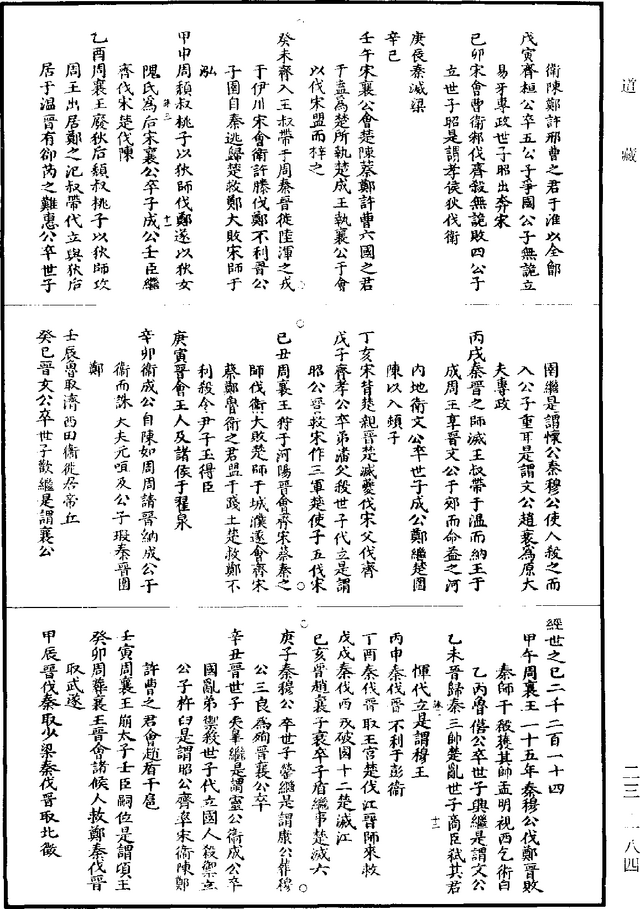 道藏
衛陳鄭許邢曹之君于淮以全鄫
戊寅齊桓公卒五公子爭國公子無詭立
易牙專政世子昭出奔宋
己卯宋會曹衛邾伐齊殺無詭敗四公子
立世子昭是謂孝侯狄伐衛
庚辰秦滅梁
辛巳
壬午宋襄公會楚陳蔡鄭許曹六國之君
于盂為楚所執楚成王執襄公于會
以伐宋盟而釋之
癸未齊入王叔帶于周秦晉徙陸渾之戎
于伊川宋會衛許滕伐鄭不利晉公
子圉自秦逃歸楚救鄭大敗宋師于
泓
甲申周頹叔桃子以狄師伐鄭遂以狄女
隗氏為后宋襄公卒子成公壬臣繼
齊伐宋楚伐陳
乙酉周襄王廢狄后頹叔桃子以狄師攻
周王出居鄭之氾叔帶代立與狄后
居于温晉有郤芮之難惠公卒世子
圉繼是謂懷公秦穆公使人殺之而
入公子重耳是謂文公趙衰為原大
夫專政
丙戌秦晉之師滅王叔帶于温而納王于
成周王享晉文公于郟而命益之河
内地衛文公卒世子成公鄭繼楚圍
陳以入頓子
丁亥宋背楚親晉楚滅夔伐宋父伐齊
戊子齊孝公卒弟潘父殺世子代立是謂
昭公晉救宋作三軍楚使子玉伐宋
己丑周襄王狩于河陽晉會齊宋蔡秦之
師伐衛大敗楚師于城濮遂會齊宋
蔡鄭魯衛之君盟于踐土楚救鄭不
利殺令尹子玉得臣
庚寅晉會王人及諸侯于翟泉
辛卯衛成公自陳如周周諸晉納成公于
衛而誅大夫元咺及公子瑕秦晉圍
鄭
壬辰魯取濟西田衛徙居帝丘
癸巳晉文公卒世子歡繼是謂襄公
經世之巳二千二百一十四
甲午周襄王一十五年秦穆公伐鄭晉敗
秦師于殽獲其帥孟明視西乞術白
乙丙魯僖公卒世子興繼是謂文公
乙未晉歸秦三帥楚亂世子商臣弑其君
惲代立是謂穆王
丙申秦伐晉不利于彭衙
丁酉秦伐晉取王宫楚伐江晉師來救
戊戌秦伐西戎破國十二楚滅江
己亥晉趙衰子衰卒子盾繼事楚滅六
庚子秦穆公卒世子罃繼是謂康公葬穆
公三良為殉晉襄公卒
辛丑晉世子夷臯繼是謂靈公衛成公卒
國亂弟禦殺世子代立國人殺禦立
公子杵臼是謂昭公齊率宋衛陳鄭
許曹之君會趙盾于扈
壬寅周襄王崩太子壬臣嗣位是謂頃王
癸卯周葬襄王晉會諸候人救鄭秦伐晉
取武遂
甲辰晉伐秦取少梁秦伐晉取北徵
二三—一八四